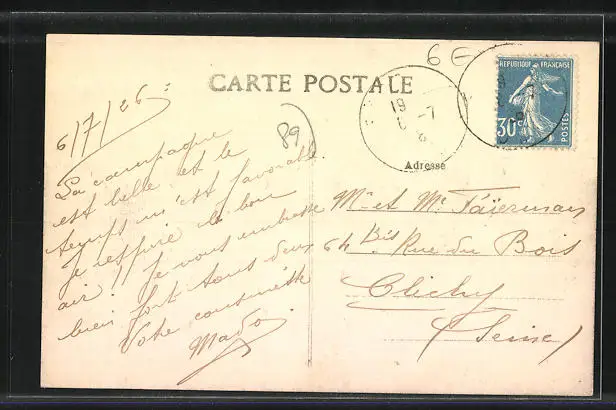 CARTE POSTALE
6/7/26
La campagne
est belle et le
temps m'est favorable.
Je respire le bon
air! Je vous embrasse
bien fort tous deux
Votre cousinette
Mado.
89
6
19
-7
Adresse
REPUBLIQUE FRANÇAISE
30c
POSTES
Mr et Me Faïerman
64 Bis Rue du Bois
Clichy
(Seine)